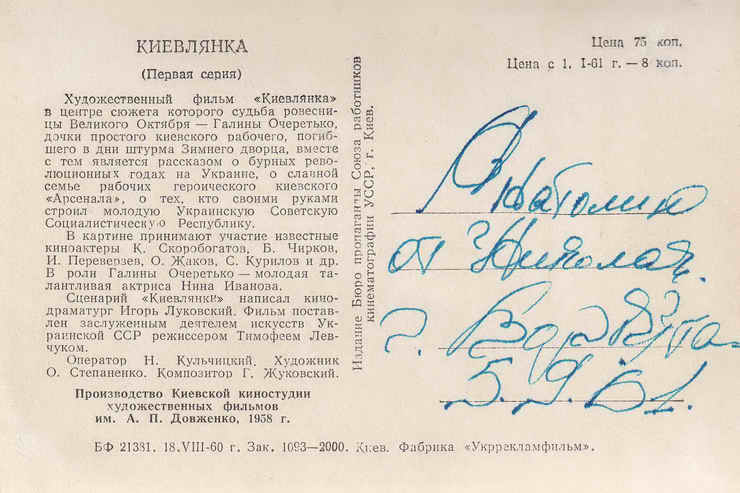 КИЕВЛЯНКА
(Первая серия)
Художественный фильм «Киевлянка»
в центре сюжета которого судьба ровесни-
цы Великого Октября — Галины Очеретько,
дочки простого киевского рабочего, погиб-
шего в дни штурма Зимнего дворца, вместе
с тем является рассказом о бурных рево-
люционных годах на Украине, о славной
семье рабочих героического киевского
«Арсенала», о тех, кто своими руками
строил молодую Украинскую Советскую
Социалистическую Республику.
В картине принимают участие известные
киноактеры К. Скоробогатов, Б. Чирков,
И. Переверзев, О. Жаков, С. Курилов и др.
В роли Галины Очеретько — молодая та-
лантливая актриса Нина Иванова.
Сценарий «Киевлянки» написал кино-
драматург Игорь Луковский. Фильм постав-
лен заслуженным деятелем искусств Ук-
раинской ССР режиссером Тимофеем Лев-
чуком.
Оператор Н. Кульчицкий. Художник
О. Степаненко. Композитор Г. Жуковский.
Производство Киевской киностудии
художественных фильмов
им. А. П. Довженко, 1958 г.
БФ 21381. 18.VIII-60 г. Зак. 1093—2000. Киев. Фабрика «Укррекламфильм».
Издание Бюро пропаганды Союза работников
кинематографии УССР, г. Киев.
Цена 75 коп.
Цена с 1. I-61 г. — 8 коп.
Анатолию
от Николая.
г. Воркута
5.9.61.